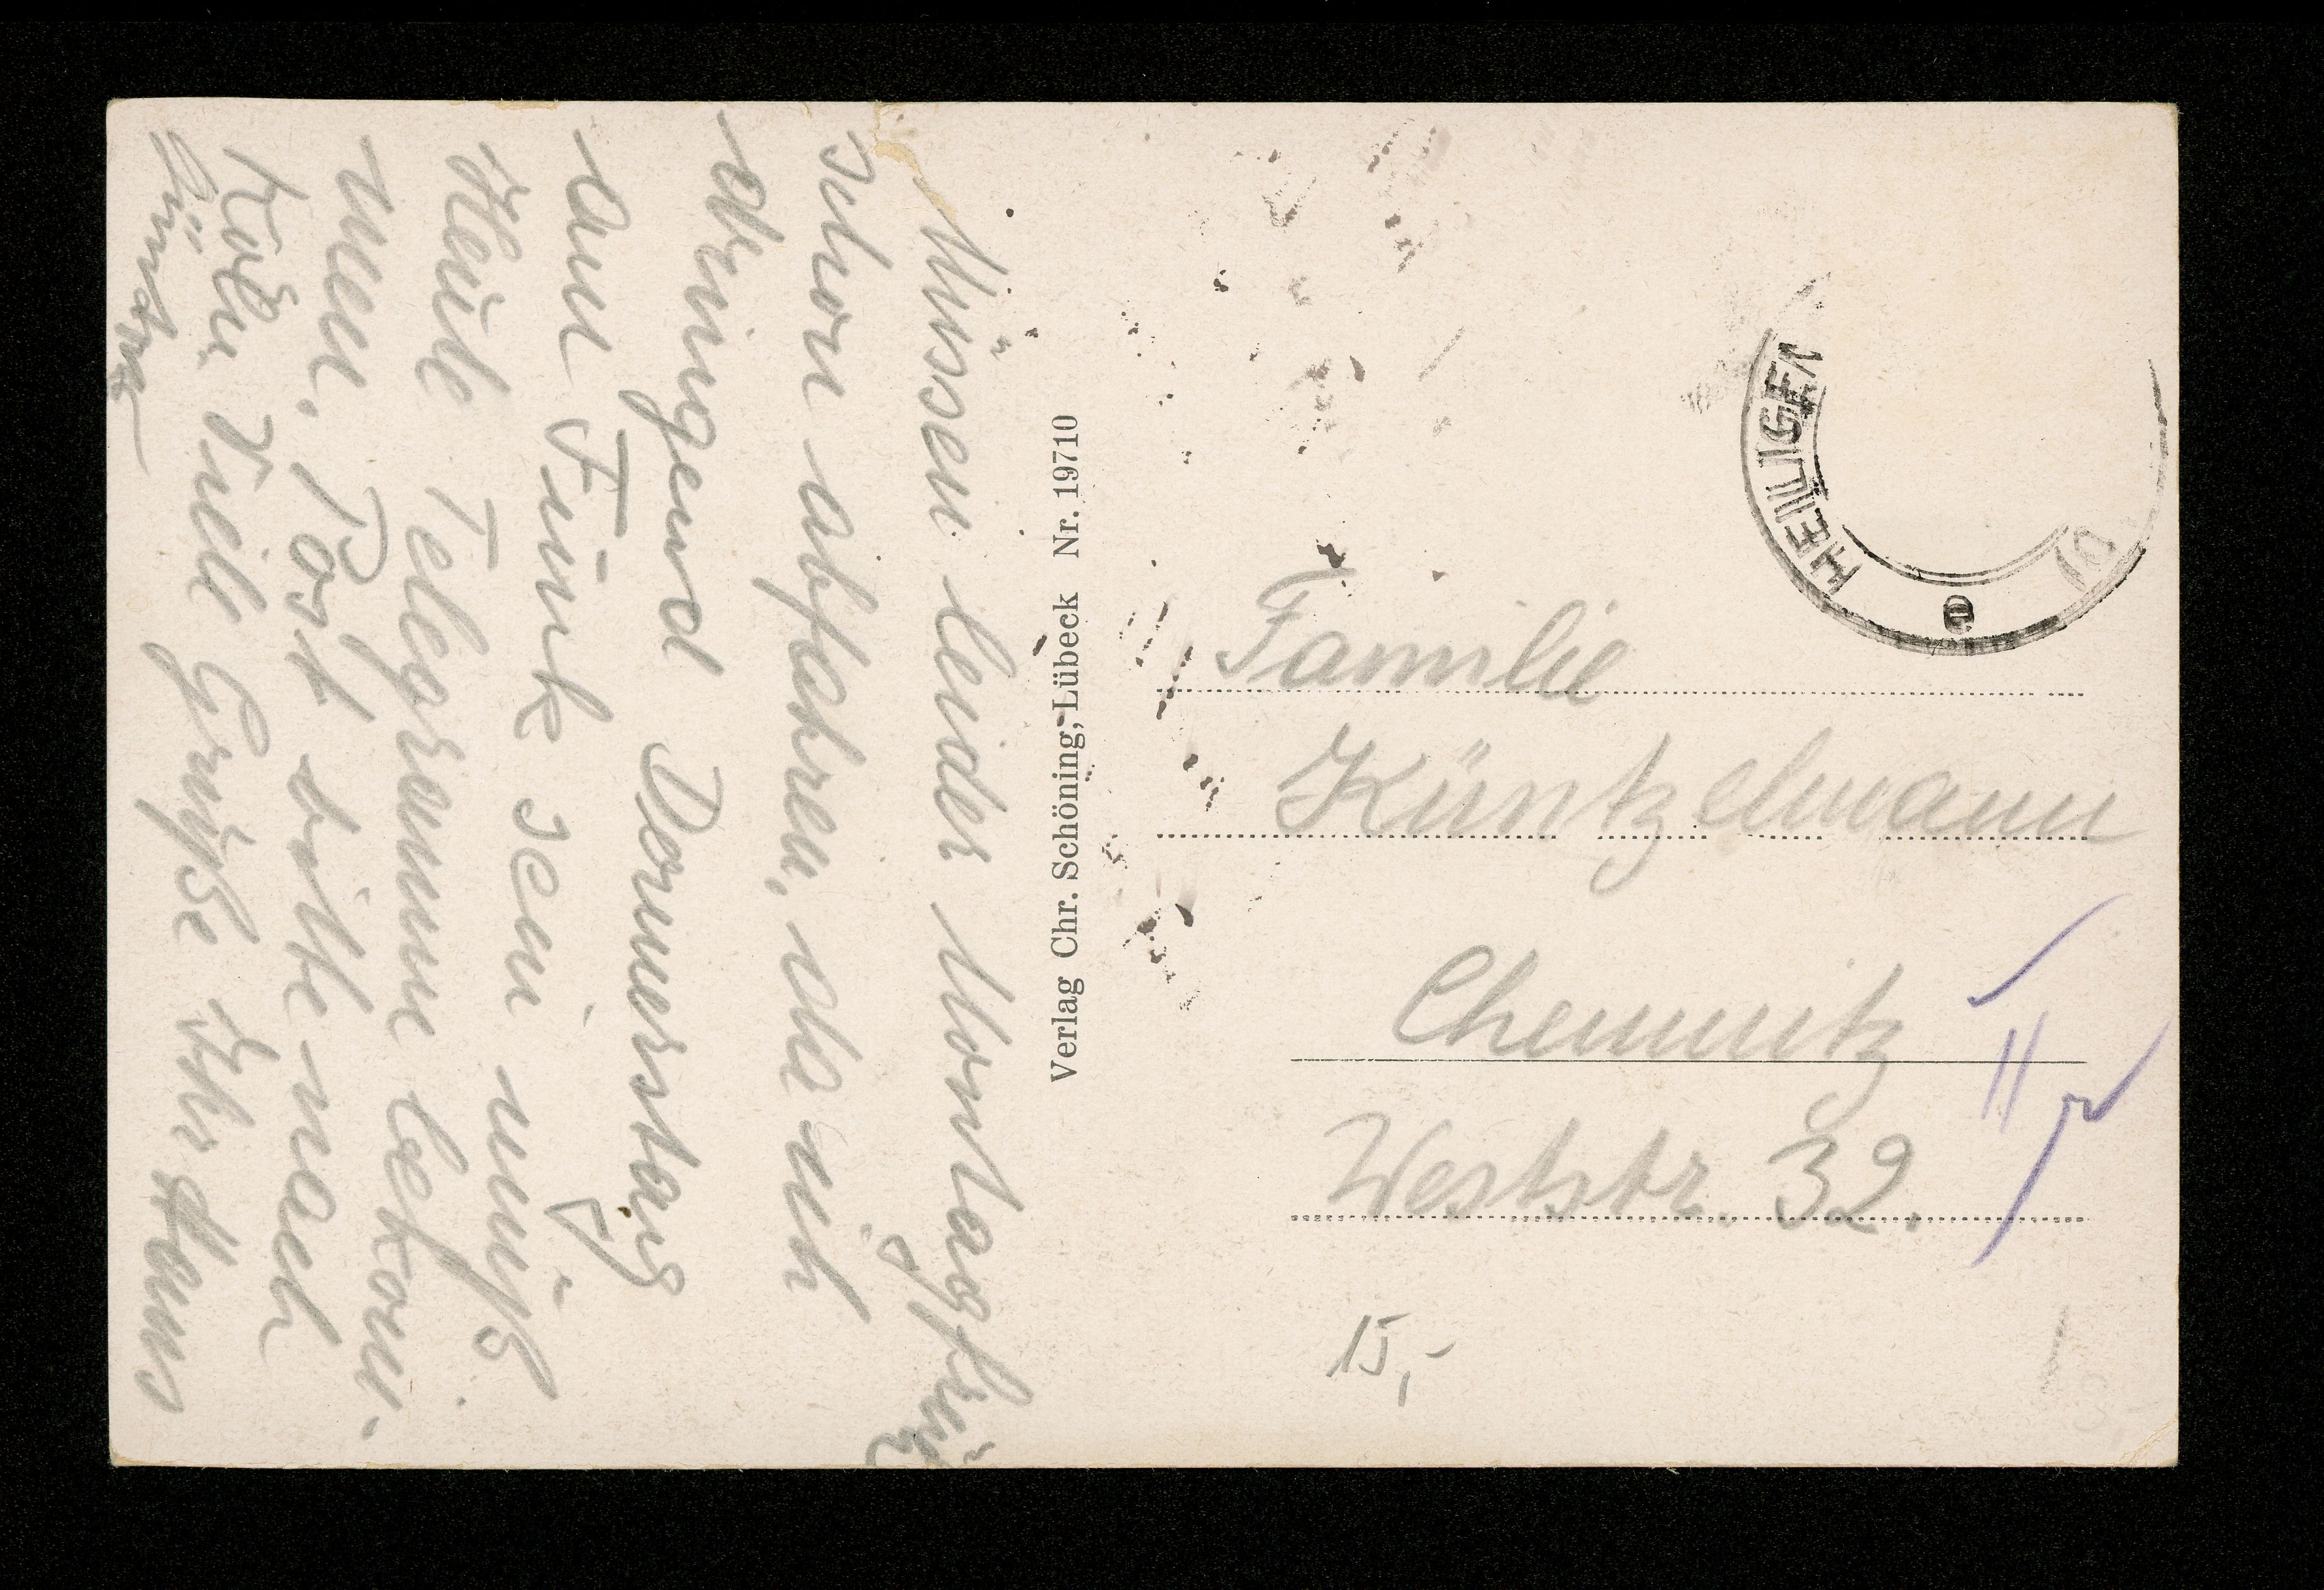 Müssen leider Montag früh
schon abfahren, da ich
dringend Donnerstag
am Funk sein muß.
Heute Telegramm bekom-
men. Post bitte nach
Köln. Viele Grüße Ihr Hans
Verlag Chr. Schöning, Lübeck Nr. 19710
HEILIGEN
Familie
Küntzelmann
Chemnitz
Weststr. 32.
15,-